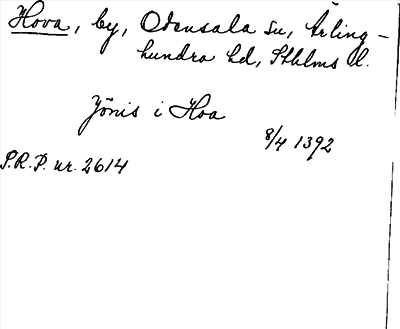 Hova, by, Odensala sn, Ärling-
hundra hd, Sthlms l.
Jönis i Hoa
8/4 1392
S.R.P. nr. 2614